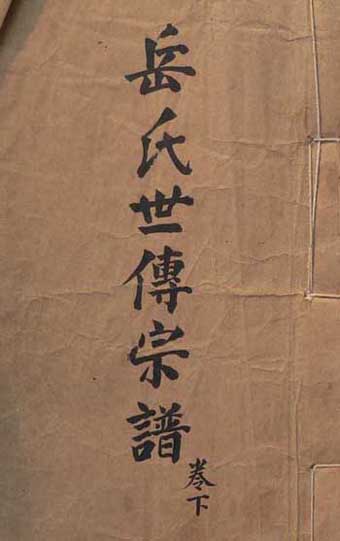 岳氏世傳宗譜
卷下